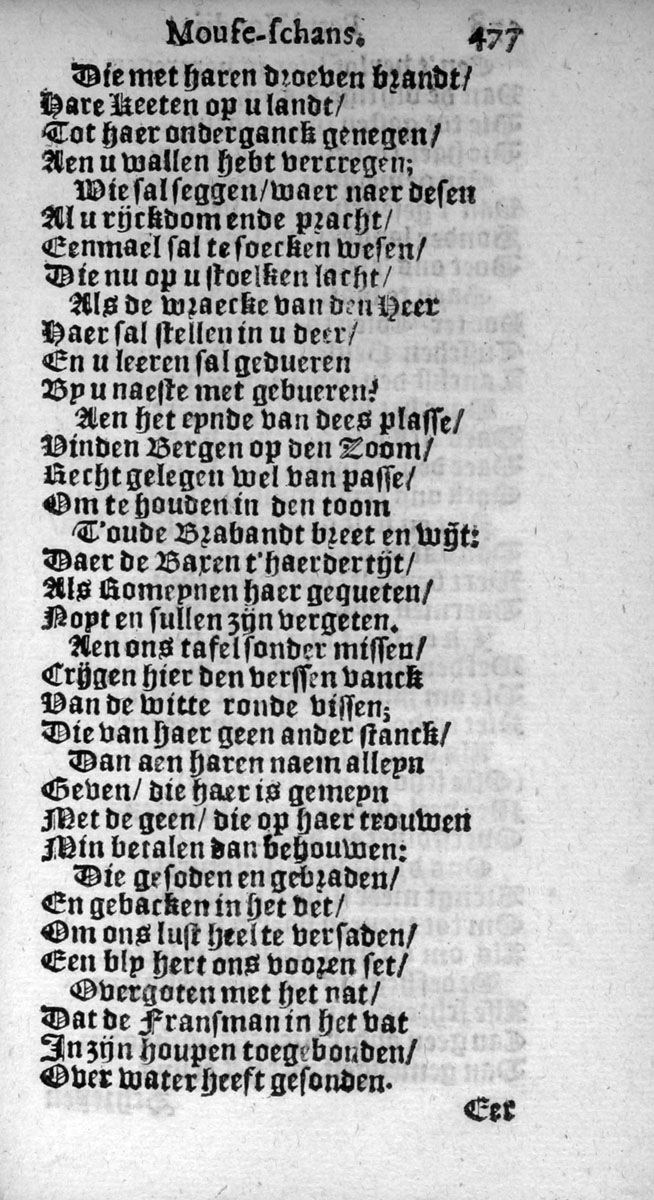 Mouse-schans. 477
Die met haren droeven brandt/
Hare Keeten op u landt/
Tot haer onderganck genegen/
Aen u wallen hebt vercregen;
Wie sal seggen/waer naer desen
Al u rijckdom ende pracht/
Eenmael sal te soecken wesen/
Die nu op u stoelken lacht/
Als de wraecke van den Heer
Haer sal stellen in u deer/
En u leeren sal gedueren
By u naeste met gebueren?
Aen het eynde van dees plasse/
Vinden Bergen op den Zoom/
Recht gelegen wel van passe/
Om te houden in den toom
T'oude Brabandt breet en wijt:
Daer de Baxen t'haerder tijt/
Als Romeynen haer gequeten/
Noyt en sullen zijn vergeten.
Aen ons tafel sonder missen/
Crijgen hier den verssen vanck
Van de witte ronde vissen;
Die van haer geen ander stanck/
Dan aen haren naem alleyn
Geven/ die haer is gemeyn
Met de geen/ die op haer trouwen
Min betalen dan behouwen:
Die gesoden en gebraden/
En gebacken in het vet/
Om ons lust heel te versaden/
Een bly hert ons vooren set/
Overgoten met het nat/
Dat de Fransman in het vat
In zijn houpen toegebonden/
Over water heeft gesonden.
Eer